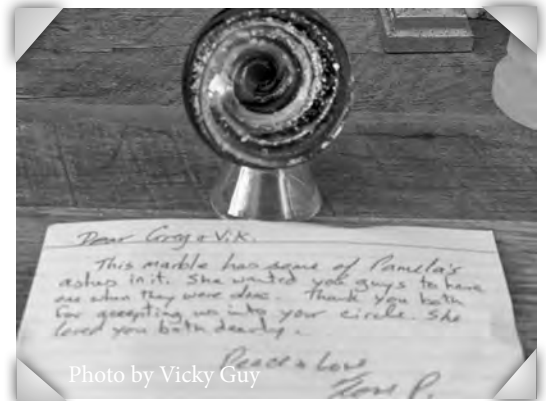 Dear Greg & Vik.
This marble has some of Pamela's
ashes in it. She wanted you guys to have
one when they were done. Thank you both
for accepting us into your circle. She
loved you both dearly.
Peace & Love
P.
Photo by Vicky Guy